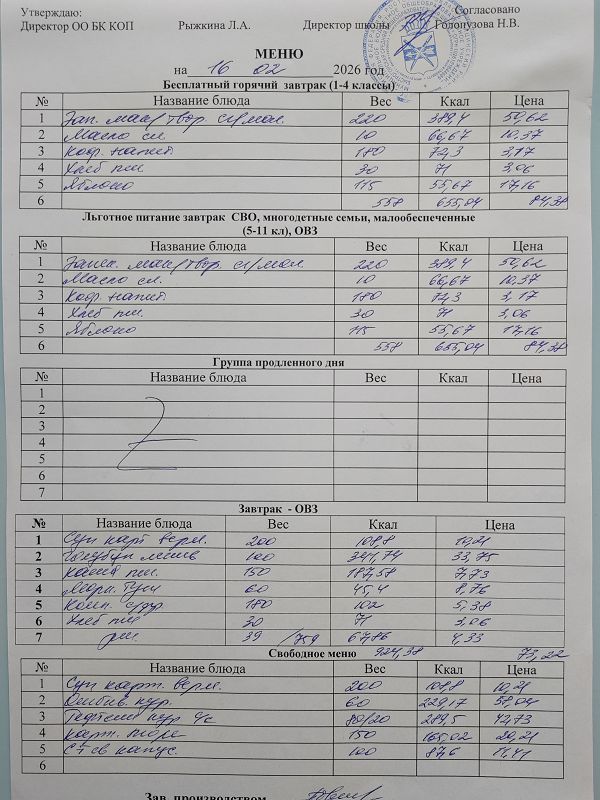 Утверждаю: Согласовано
Директор ОО БК КОП Рыжкина Л.А. Директор школы Голопузова Н.В.
МЕНЮ
на 16 02 2026 год
Бесплатный горячий завтрак (1-4 классы)
№ Название блюда Вес Ккал Цена
1 Зап. мак/твор. сл/мол. 220 389,4 50,62
2 Масло сл. 10 66,67 10,37
3 Коф. напит. 180 72,3 3,17
4 Хлеб пш 30 71 3,06
5 Яблоко 115 55,67 17,16
6 558 655,04 84,38
Льготное питание завтрак СВО, многодетные семьи, малообеспеченные
(5-11 кл), ОВЗ
№ Название блюда Вес Ккал Цена
1 Запек. мак/твор. сл/мол. 220 389,4 50,62
2 Масло сл. 10 66,67 10,37
3 Коф. напит. 180 72,3 3,17
4 Хлеб пш. 30 71 3,06
5 Яблоко 115 55,67 17,16
6 558 655,04 84,38
Группа продленного дня
№ Название блюда Вес Ккал Цена
1
2
3
4
5
6
7
Завтрак - ОВЗ
№ Название блюда Вес Ккал Цена
1 Суп карт верм. 200 108,8 10,21
2 100 341,74 33,75
3 Каша пш. 150 187,58 7,73
4 60 45,4 8,76
5 Комп. с/фр 180 102 5,38
6 Хлеб пш 30 71 3,06
7 39 /759 67,86 4,33
Свободное меню 924,38 73,22
№ Название блюда Вес Ккал Цена
1 Суп карт. верм. 200 108,8 10,21
2 кур. 60 229,17 58,04
3 кур 80/20 289,5 42,73
4 карт. пюре 150 165,02 20,21
5 капус. 100 87,6 11,41
6
Зав. производством